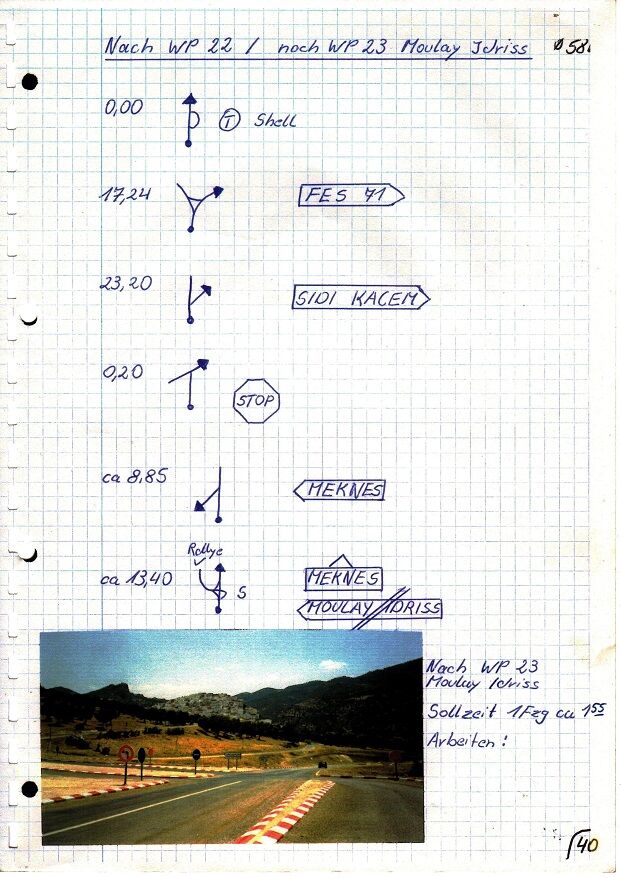 Nach WP 22 / noch WP 23 Moulay Idriss
0,00 T Shell
17,24 FES 71
23,20 SIDI KACEM
0,20 STOP
ca 8,85 MEKNES
Rallye
ca 13,40 S MEKNES
MOULAY IDRISS
Nach WP 23
Moulay Idriss
Sollzeit 1Fzg ca 1 55
Arbeiten:
40